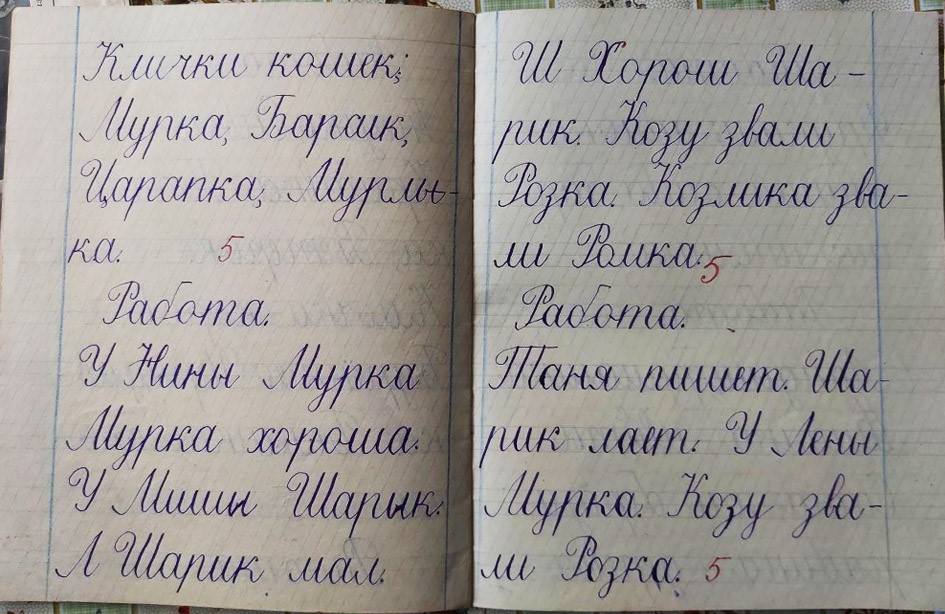 Клички кошек:
Мурка, Барсик,
Царапка, Мурмы-
ка. 5
Работа.
У Нины Мурка
Мурка хороша.
У Миши Шарык.
Л Шарик мал.
Ш Хорош Ша-
рик. Козу звали
Розка. Козлика зва-
ли Ромка. 5
Работа.
Таня пишет. Ша-
рик лает. У Лены
Мурка. Козу зва-
ли Розка. 5